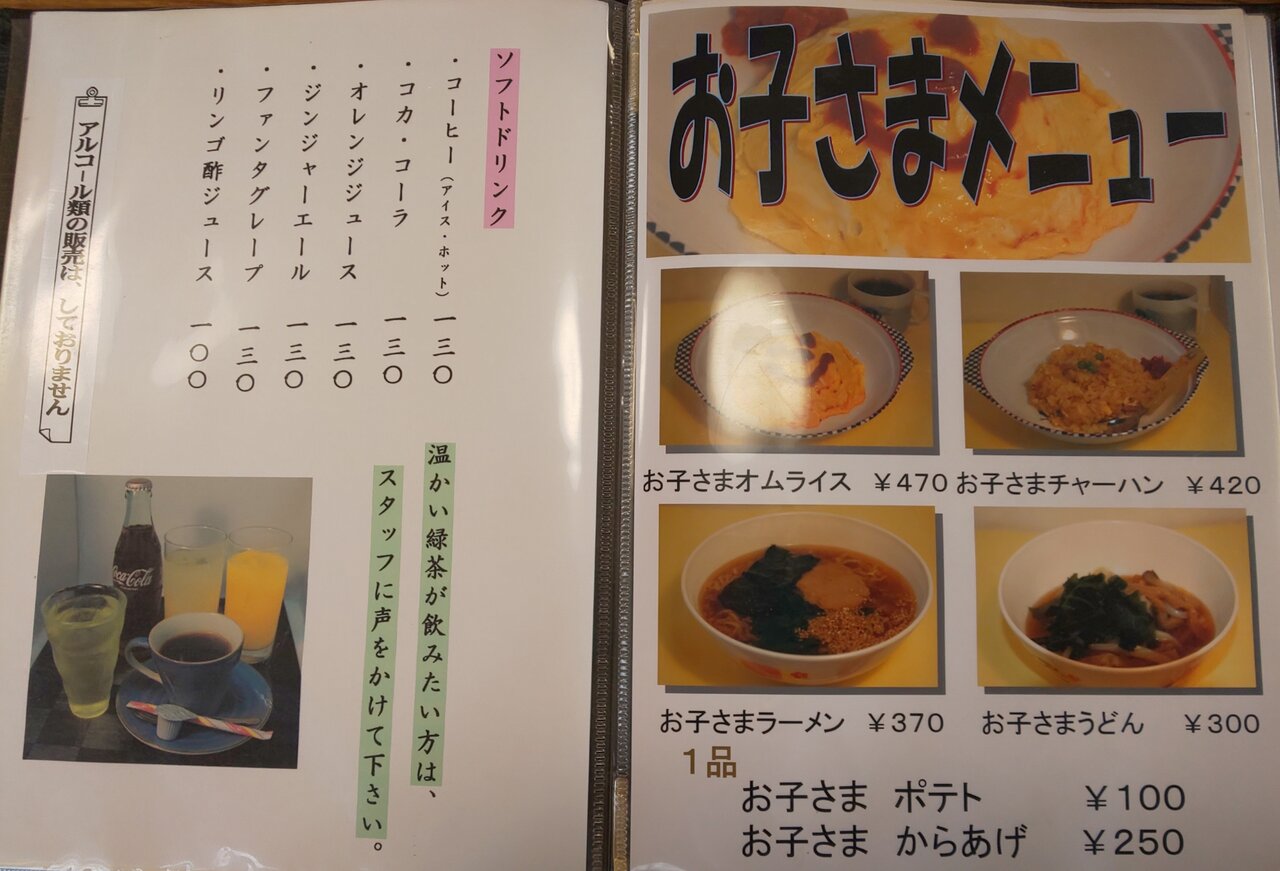 ソフトドリンク
・コーヒー（アイス・ホット） 一三〇
・コカ・コーラ 一三〇
・オレンジジュース 一三〇
・ジンジャーエール 一三〇
・ファンタグレープ 一三〇
・リンゴ酢ジュース 一〇〇
アルコール類の販売は、しておりません
温かい緑茶が飲みたい方は、
スタッフに声をかけて下さい。
Coca-Cola
お子さまメニュー
お子さまオムライス ￥470
お子さまチャーハン ￥420
お子さまラーメン ￥370
お子さまうどん ￥300
１品
お子さま ポテト ￥100
お子さま からあげ ￥250